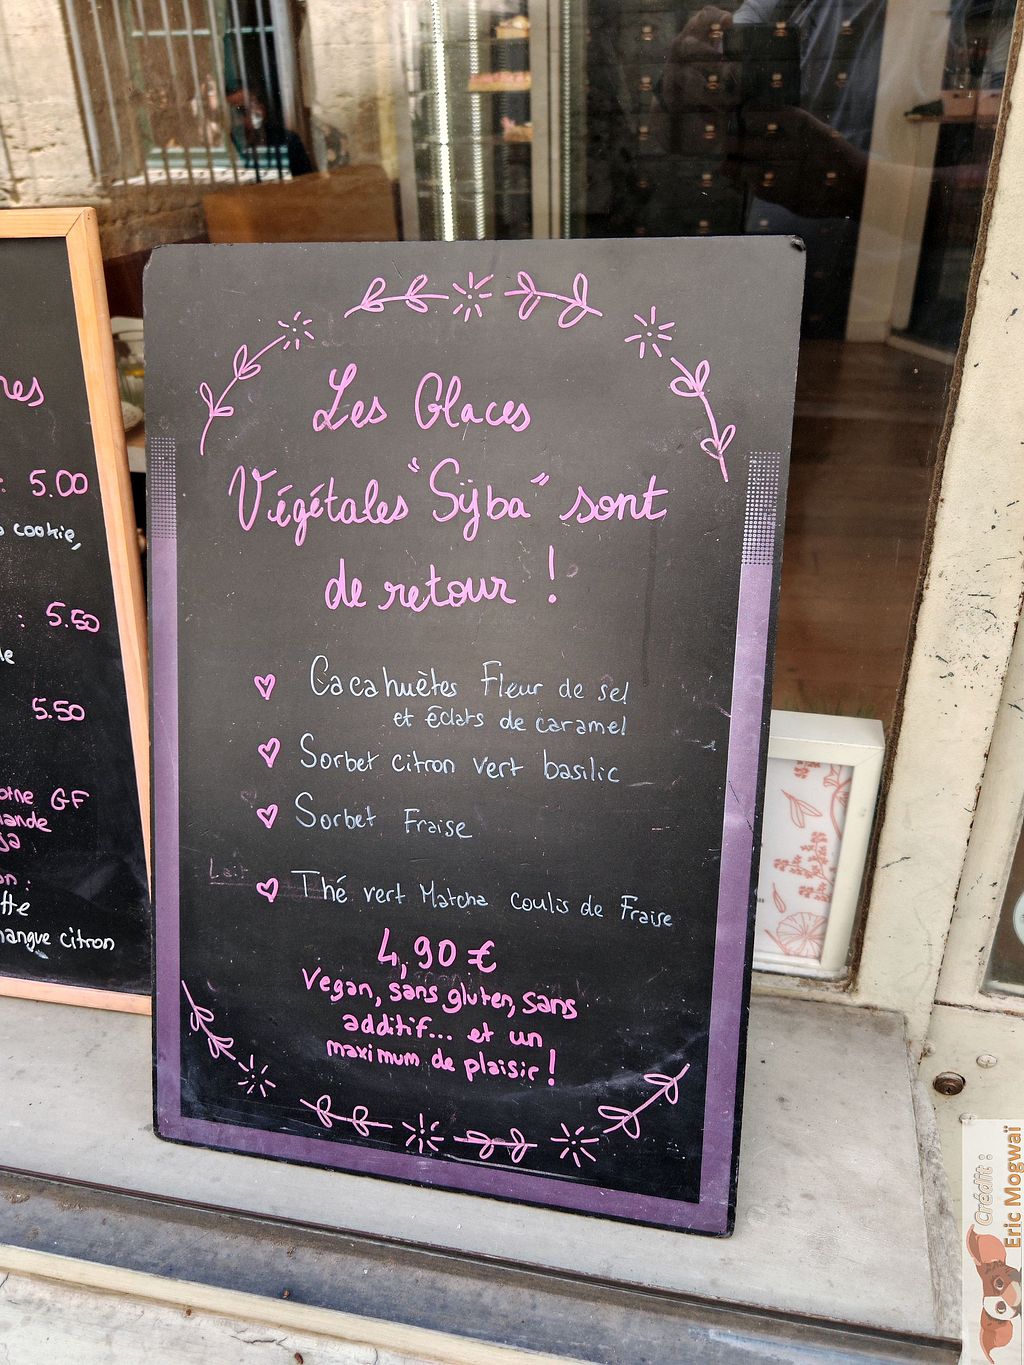 Les Glaces
Végétales "Sÿba" sont
de retour !
Cacahuètes Fleur de sel
et éclats de caramel
Sorbet citron vert basilic
Sorbet Fraise
Lait
Thé vert Matcha coulis de Fraise
4,90 €
Vegan, sans gluten, sans
additif... et un
maximum de plaisir !
: 5.00
cookie,
: 5.50
5.50
GF
citron
Crédit :
Eric Mogwaï